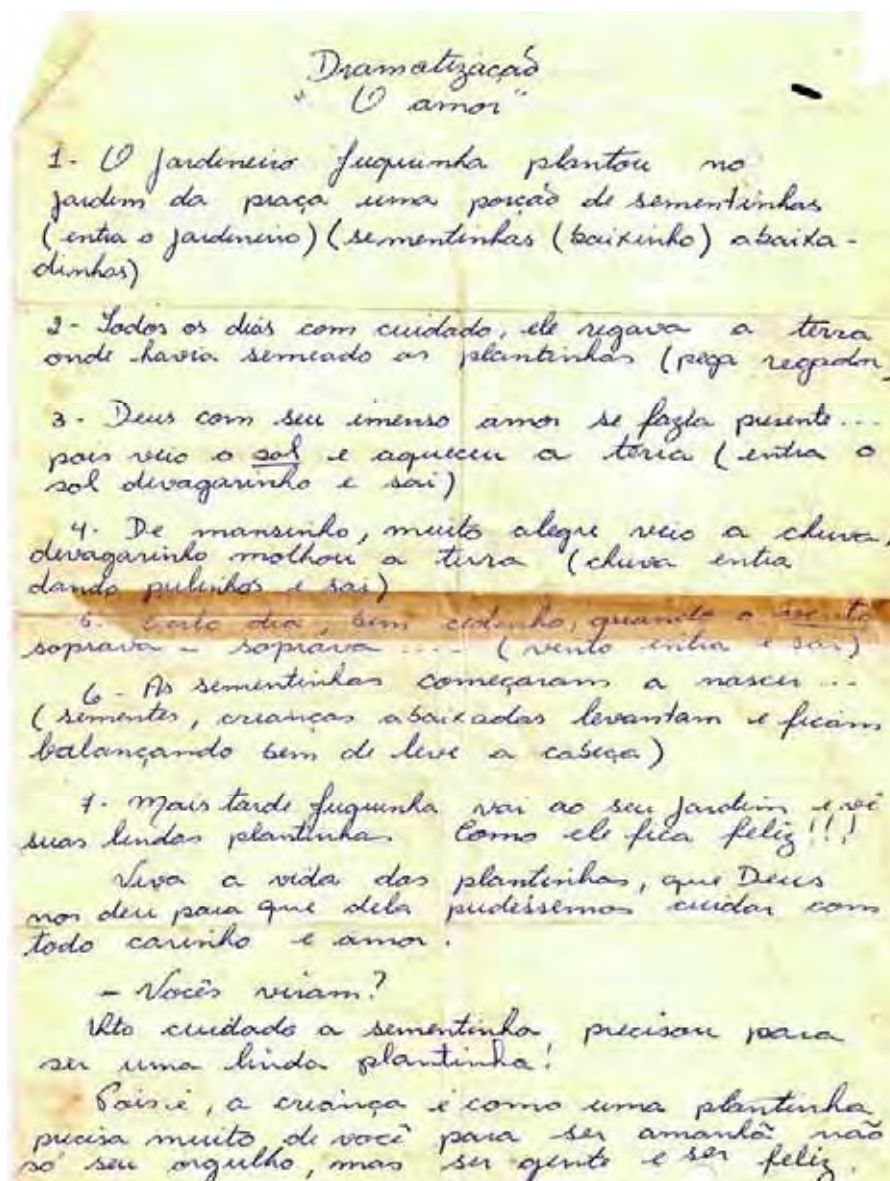 Dramatização
"O amor"
1- O jardineiro fuquinha plantou no
jardim da praça uma porção de sementinhas
(entra o jardineiro) (sementinhas (baixinho) abaixa-
dinhas)
2- Todos os dias com cuidado, ele regava a terra
onde havia semeado as plantinhas (pega regador)
3- Deus com seu imenso amor se fazia presente...
pois veio o sol e aqueceu a terra (entra o
sol devagarinho e sai)
4- De mansinho, muito alegre veio a chuva,
devagarinho molhou a terra (chuva entra
dando pulinhos e sai)
5- Certo dia, bem cedinho, quando o vento
soprava - soprava .... (vento entra e sai)
6- As sementinhas começaram a nascer ...
(sementes, crianças abaixadas levantam e ficam
balançando bem de leve a cabeça)
7- Mais tarde fuquinha vai ao seu jardim e vê
suas lindas plantinhas. Como ele fica feliz!!!
Viva a vida das plantinhas, que Deus
nos deu para que dela pudéssemos cuidar com
todo carinho e amor.
- Vocês viram?
cuidado a sementinha precisou para
ser uma linda plantinha!
Pois é, a criança é como uma plantinha
precisa muito de você para ser amanhã não
só seu orgulho, mas ser gente e ser feliz.